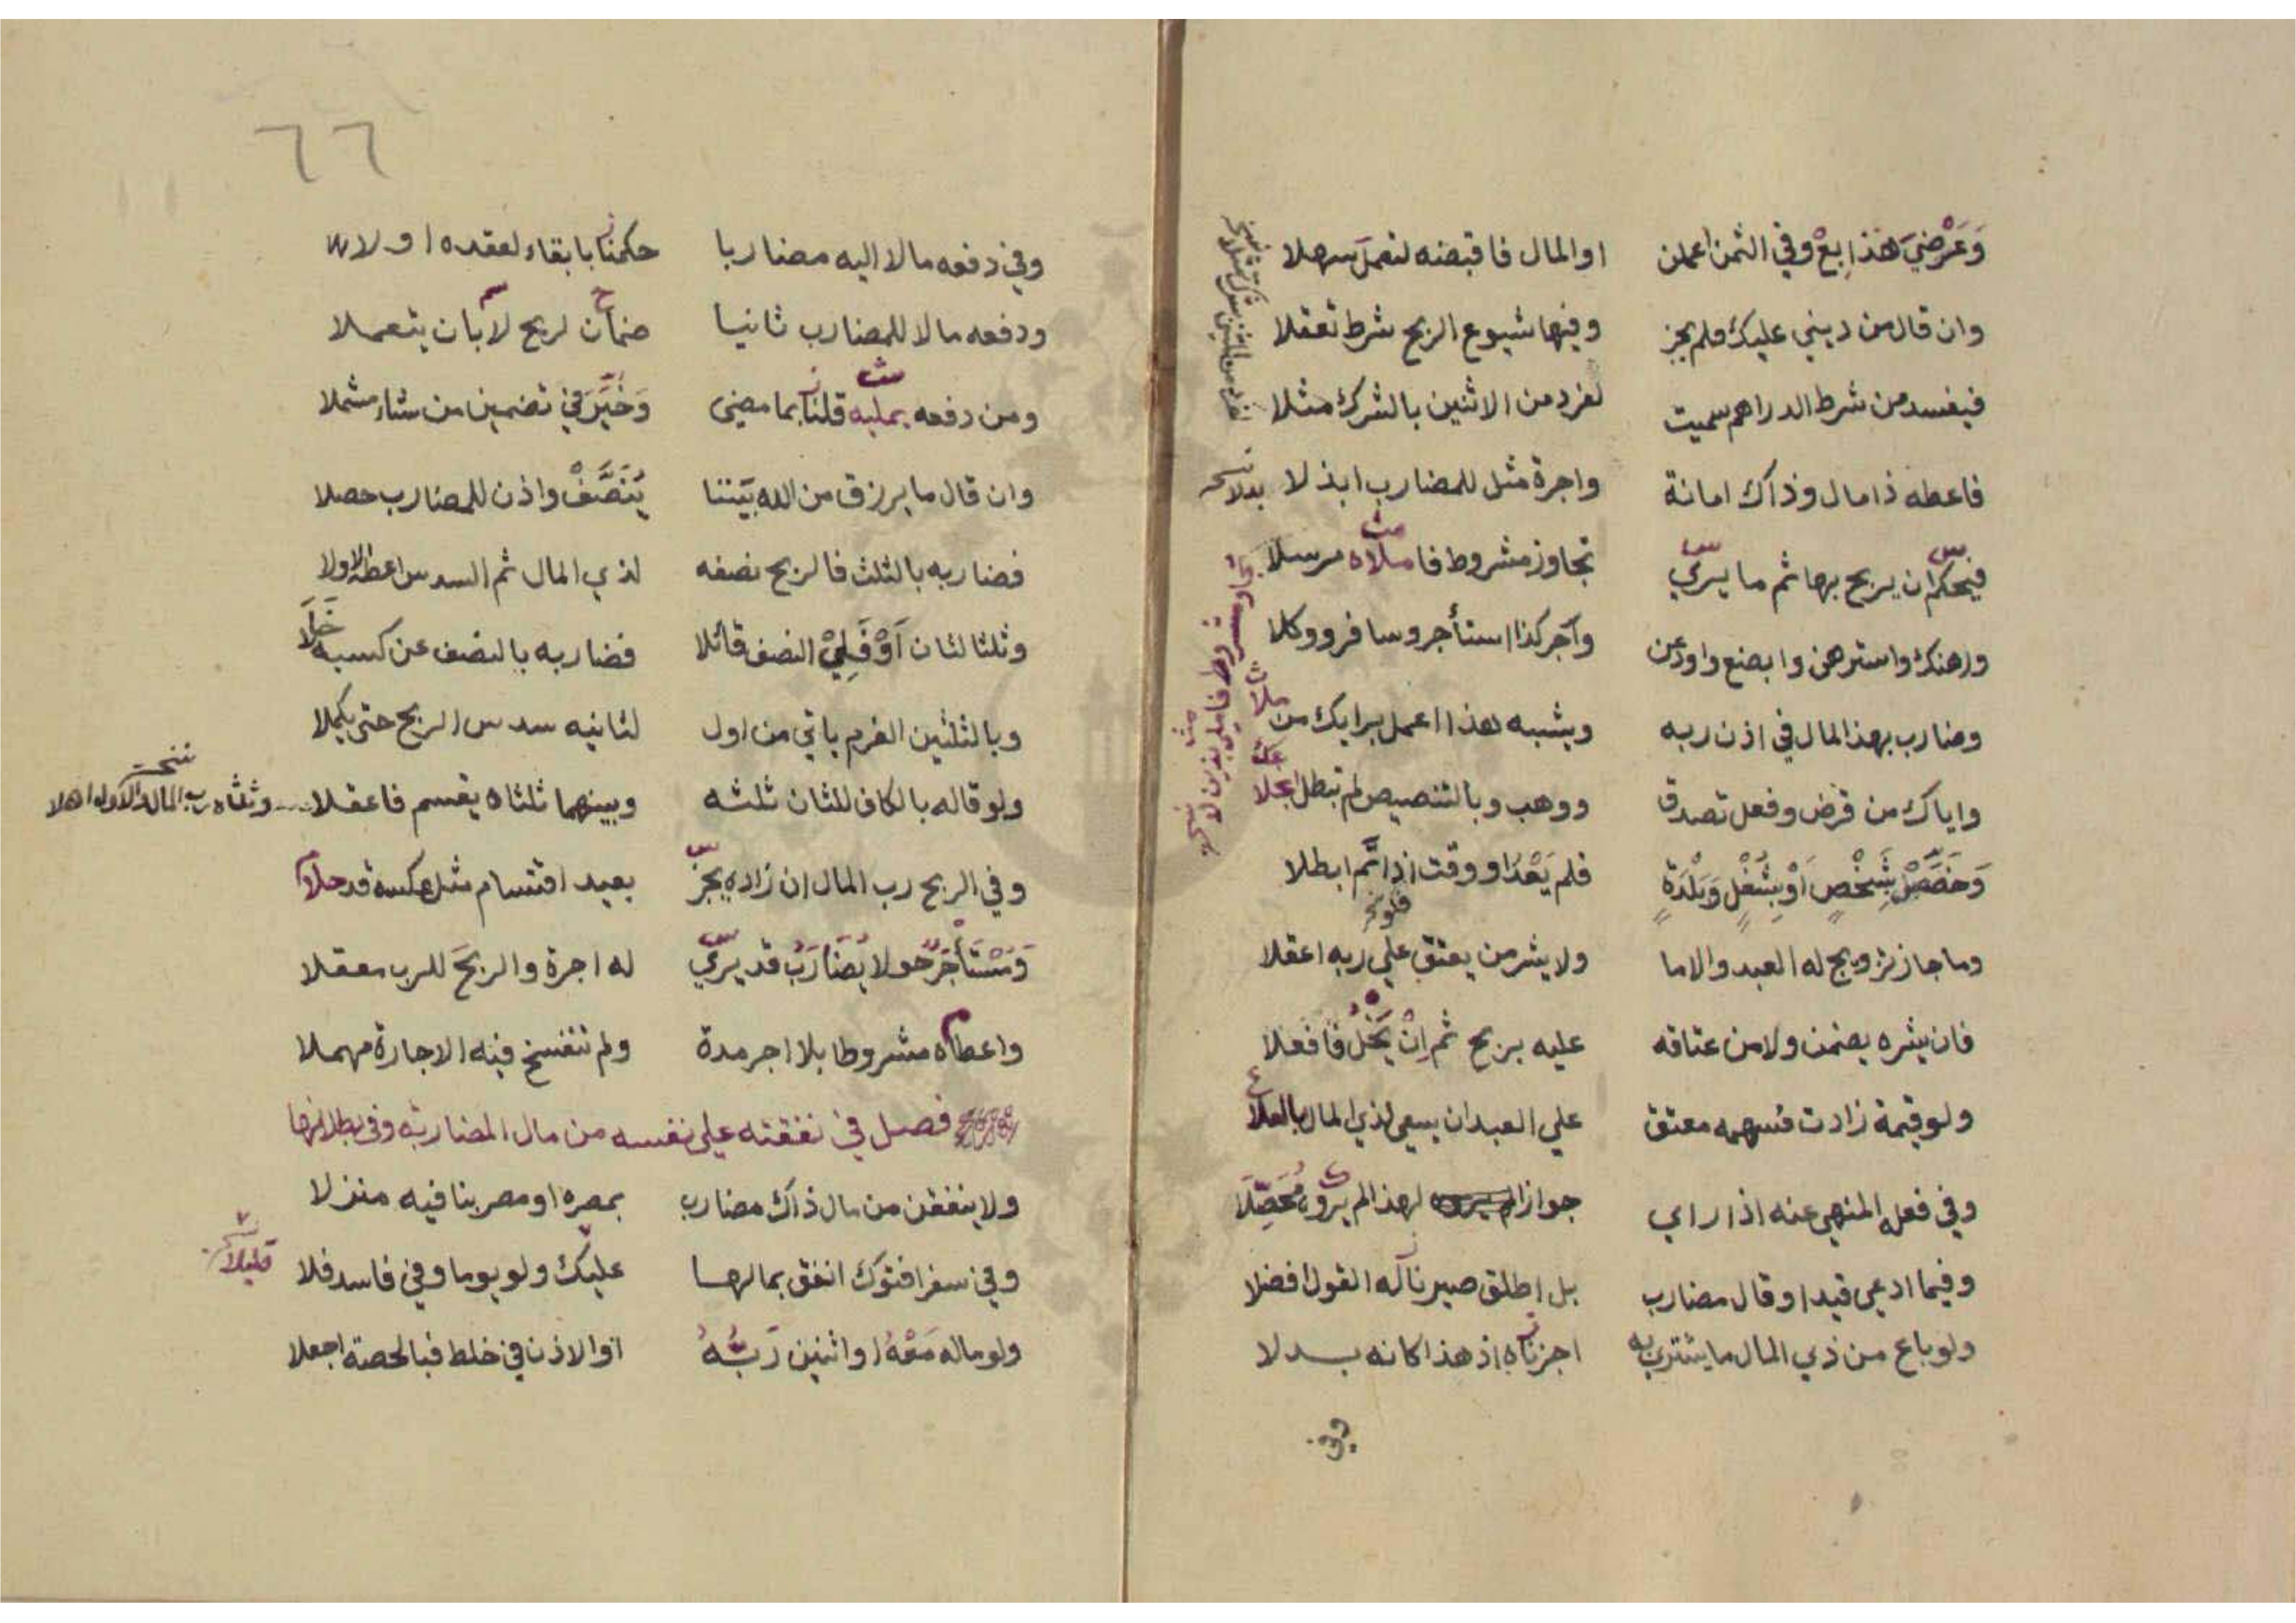 وَعَرْضِيَ هَذَا بِعْ وفي الثمن اعملن او المال فاقبضنه لتعمل سهلا
وان قال من ديني عليك فلم يجز وفيها شيوع الربح شرط تعقلا
فيفسد من شرط الدراهم سميت لفرد من الاثنين بالشرك مثلا
فاعطه ذا مال وذاك امانة واجرة مثل للمضارب ابذلا
بدلا نسخه
فيحكم ان يربح بها ثم ما يري تجاوز مشروط فاملاه مرسلا
ورهنك واسترهن وابضع واودعن وآجر كذا استأجر وسافر ووكلا
وضارب بهذا المال في اذن ربه ويشبه هذا اعمل برايك من
واياك من قرض وفعل تصدق ووهب وبالتنصيص لم تبطل
وَخَصَّصْ بِشَخْصٍ اَوْ بِشُغْلٍ وَبَلْدَةٍ فلم يَعْدُ او وقت اذا تم ابطلا
وما جاز تزويج له العبد والاما ولا يشر من يعتق علي ربه اعقلا
فان يشره يضمن ولا من عتاقه عليه بربح ثم اِنْ يَخْلُ فافعلا
ولو قيمة زادت فسهمه معتق علي العبد ان يسعي لذي المال بالعلا
وفي فعله المنهي عنه اذا راي جواز لهذا لم يروه مُحَصِّلَا
وفيما ادعي قيدا وقال مضارب بل اطلق صيرنا له القول افضلا
ولو باع من ذي المال ما يشتري به اجزناه اذ هذا كانه بدلا
وفي
٦٦
وفي دفعه مالا اليه مضاربا حكمنا بابقاء لعقده اولا
ودفعه مالا للمضارب ثانيا ضمان لربح لا بان يتعملا
ومن دفعه يمليه قلنا بما مضى وَخُيِّرَ في تضمين من شاء مشملا
وان قال ما يرزق من الله بيننا يُنَصَّفْ واذن للمضارب حصلا
فضاربه بالثلث فالربح نصفه لذي المال ثم السدس اعطه الاولا
وثلثا لثان اَوْ فَلِيْ النصف قائلا فضاربه بالنصف عن كسبه خَلَا
وبالثلثين الغرم ياتي من اول لثانيه سدس الربح حتى يكملا
ولو قاله بالكاف للثان ثلثه وبينهما ثلثاه يقسم فاعقلا
وثلثاه رب المال والاول اهلا نسخه
وفي الربح رب المال ان زاده يجز بعيد اقتسام مثل عكسه قد حلا
وَمُسْتَأْجَرٌ حولا يُضَارَبُ قد يري له اجرة والربح للرب معقلا
واعطاه مشروطا بلا اجر مدة ولم تنفسخ فيه الاجارة مهملا
فصل في نفقته علي نفسه من مال المضاربة وفي بطلانها
ولا ينفقن من مال ذاك مضارب بمصره او مصر بنا فيه منزلا
وفي سفر افتوك انفق بمالها عليك ولو يوما وفي فاسد فلا
قليلا
ولو ماله مَعْهُ او اثنين رَبُّهُ او الاذن في خلط فبالحصة اجعلا